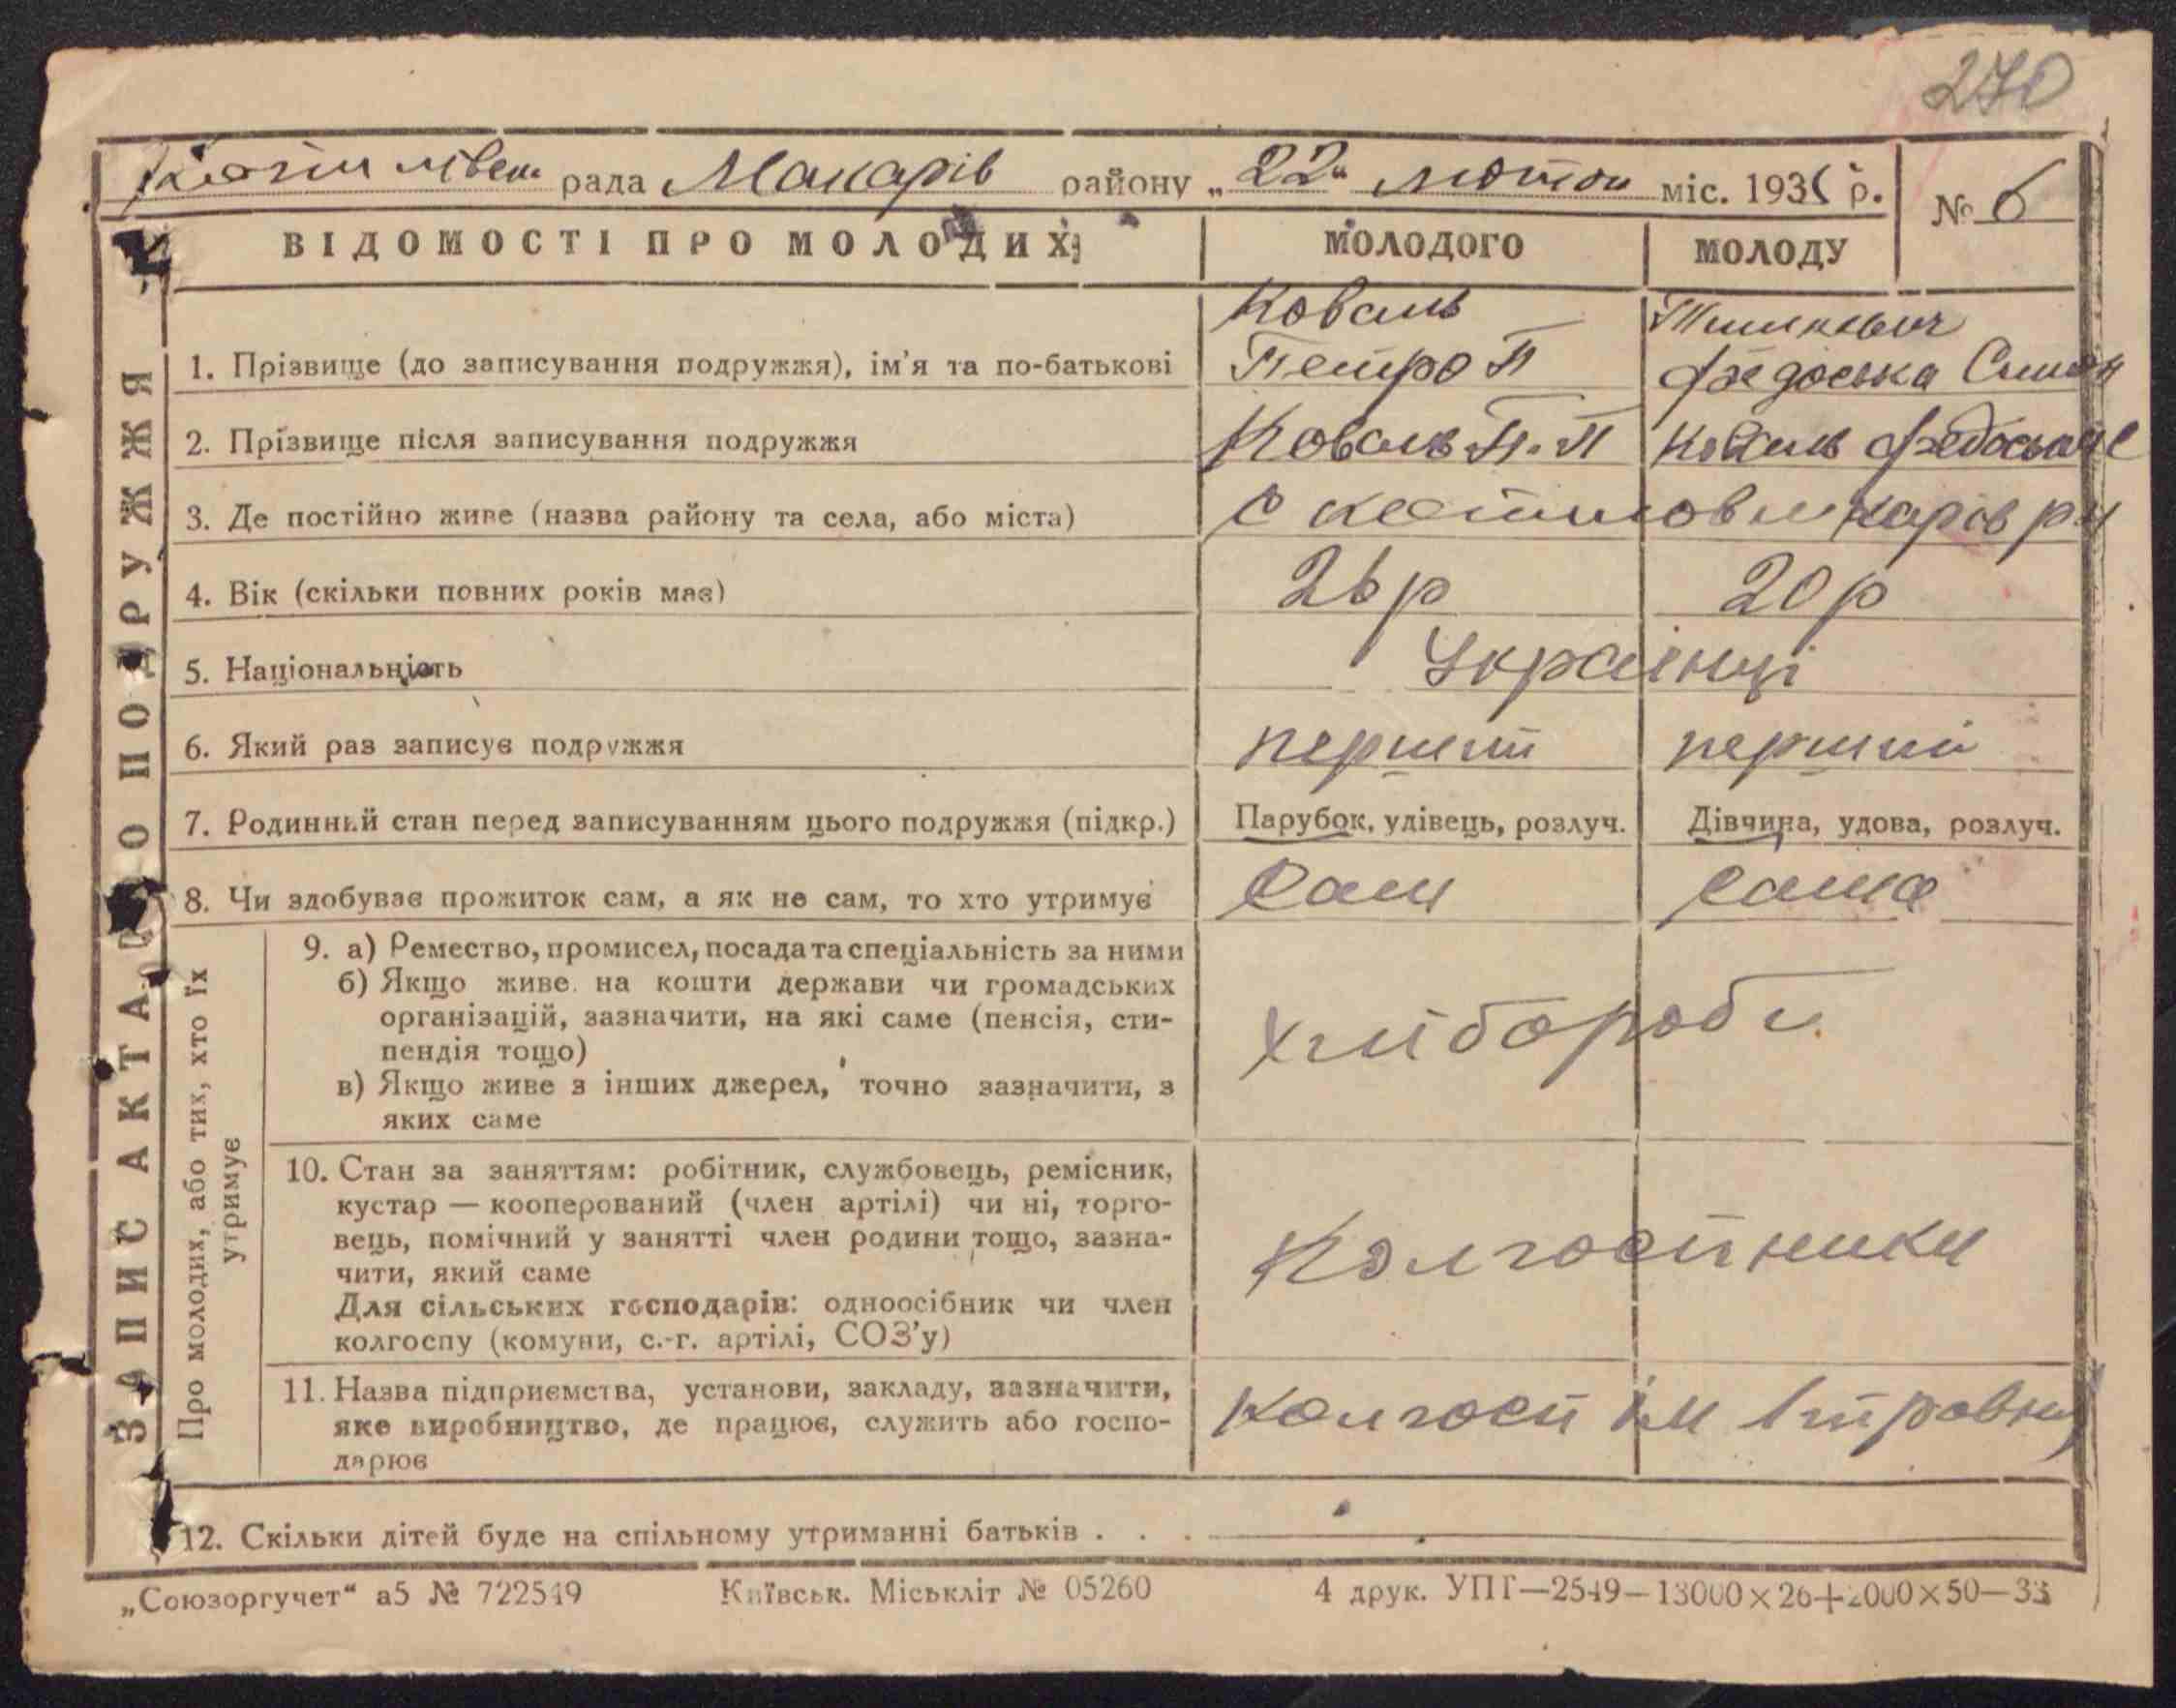 270
рада Макарів району „22" лютого міс. 193 р. № 6
ВІДОМОСТІ ПРО МОЛОДИХ МОЛОДОГО МОЛОДУ
Коваль
1. Прізвище (до записування подружжя), ім'я та по-батькові Петро П Федоська
2. Прізвище після записування подружжя Коваль П. П Коваль Федоська С
3. Де постійно живе (назва району та села, або міста) с
4. Вік (скільки повних років має) 26 р 20 р
5. Національність Українці
6. Який раз записує подружжя перший перший
7. Родинний стан перед записуванням цього подружжя (підкр.) Парубок, удівець, розлуч. Дівчина, удова, розлуч.
8. Чи здобуває прожиток сам, а як не сам, то хто утримує Сам сама
9. а) Ремество, промисел, посада та спеціальність за ними
б) Якщо живе на кошти держави чи громадських
організацій, зазначити, на які саме (пенсія, сти-
пендія тощо)
хлібороби
в) Якщо живе з інших джерел, точно зазначити, з
яких саме
10. Стан за заняттям: робітник, службовець, ремісник,
кустар — кооперований (член артілі) чи ні, торго-
вець, помічний у занятті член родини тощо, зазна-
чити, який саме
Колгоспники
Для сільських господарів: одноосібник чи член
колгоспу (комуни, с.-г. артілі, СОЗ'у)
11. Назва підприємства, установи, закладу, зазначити,
яке виробництво, де працює, служить або госпо-
дарює
колгосп ім
12. Скільки дітей буде на спільному утриманні батьків . . .
ЗАПИС АКТА ПРО ПОДРУЖЖЯ
Про молодих, або тих, хто їх
утримує
„Союзоргучет" а5 № 722549 Київськ. Міськліт № 05260 4 друк. УПП—2549—13000×26+2000×50—33